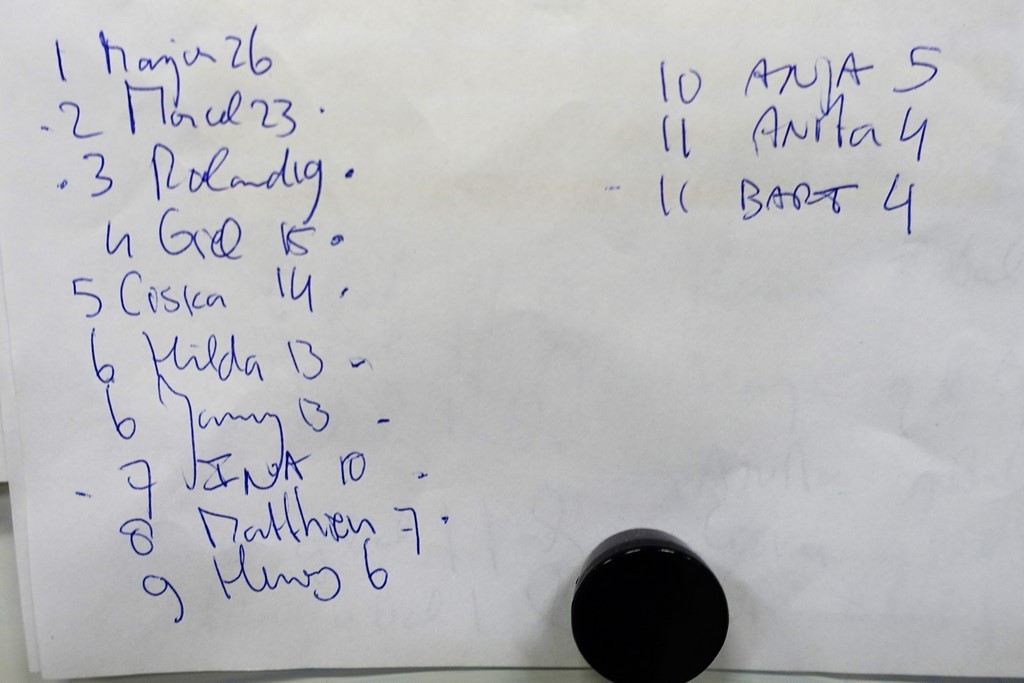 1 Marjan 26
2 Marcel 23
3 Roland 19
4 Giel 15
5 Ciska 14
6 Hilda 13
6 Janny 13
7 INA 10
8 Matthieu 7
9 Henny 6
10 ANJA 5
11 ANITA 4
11 BART 4